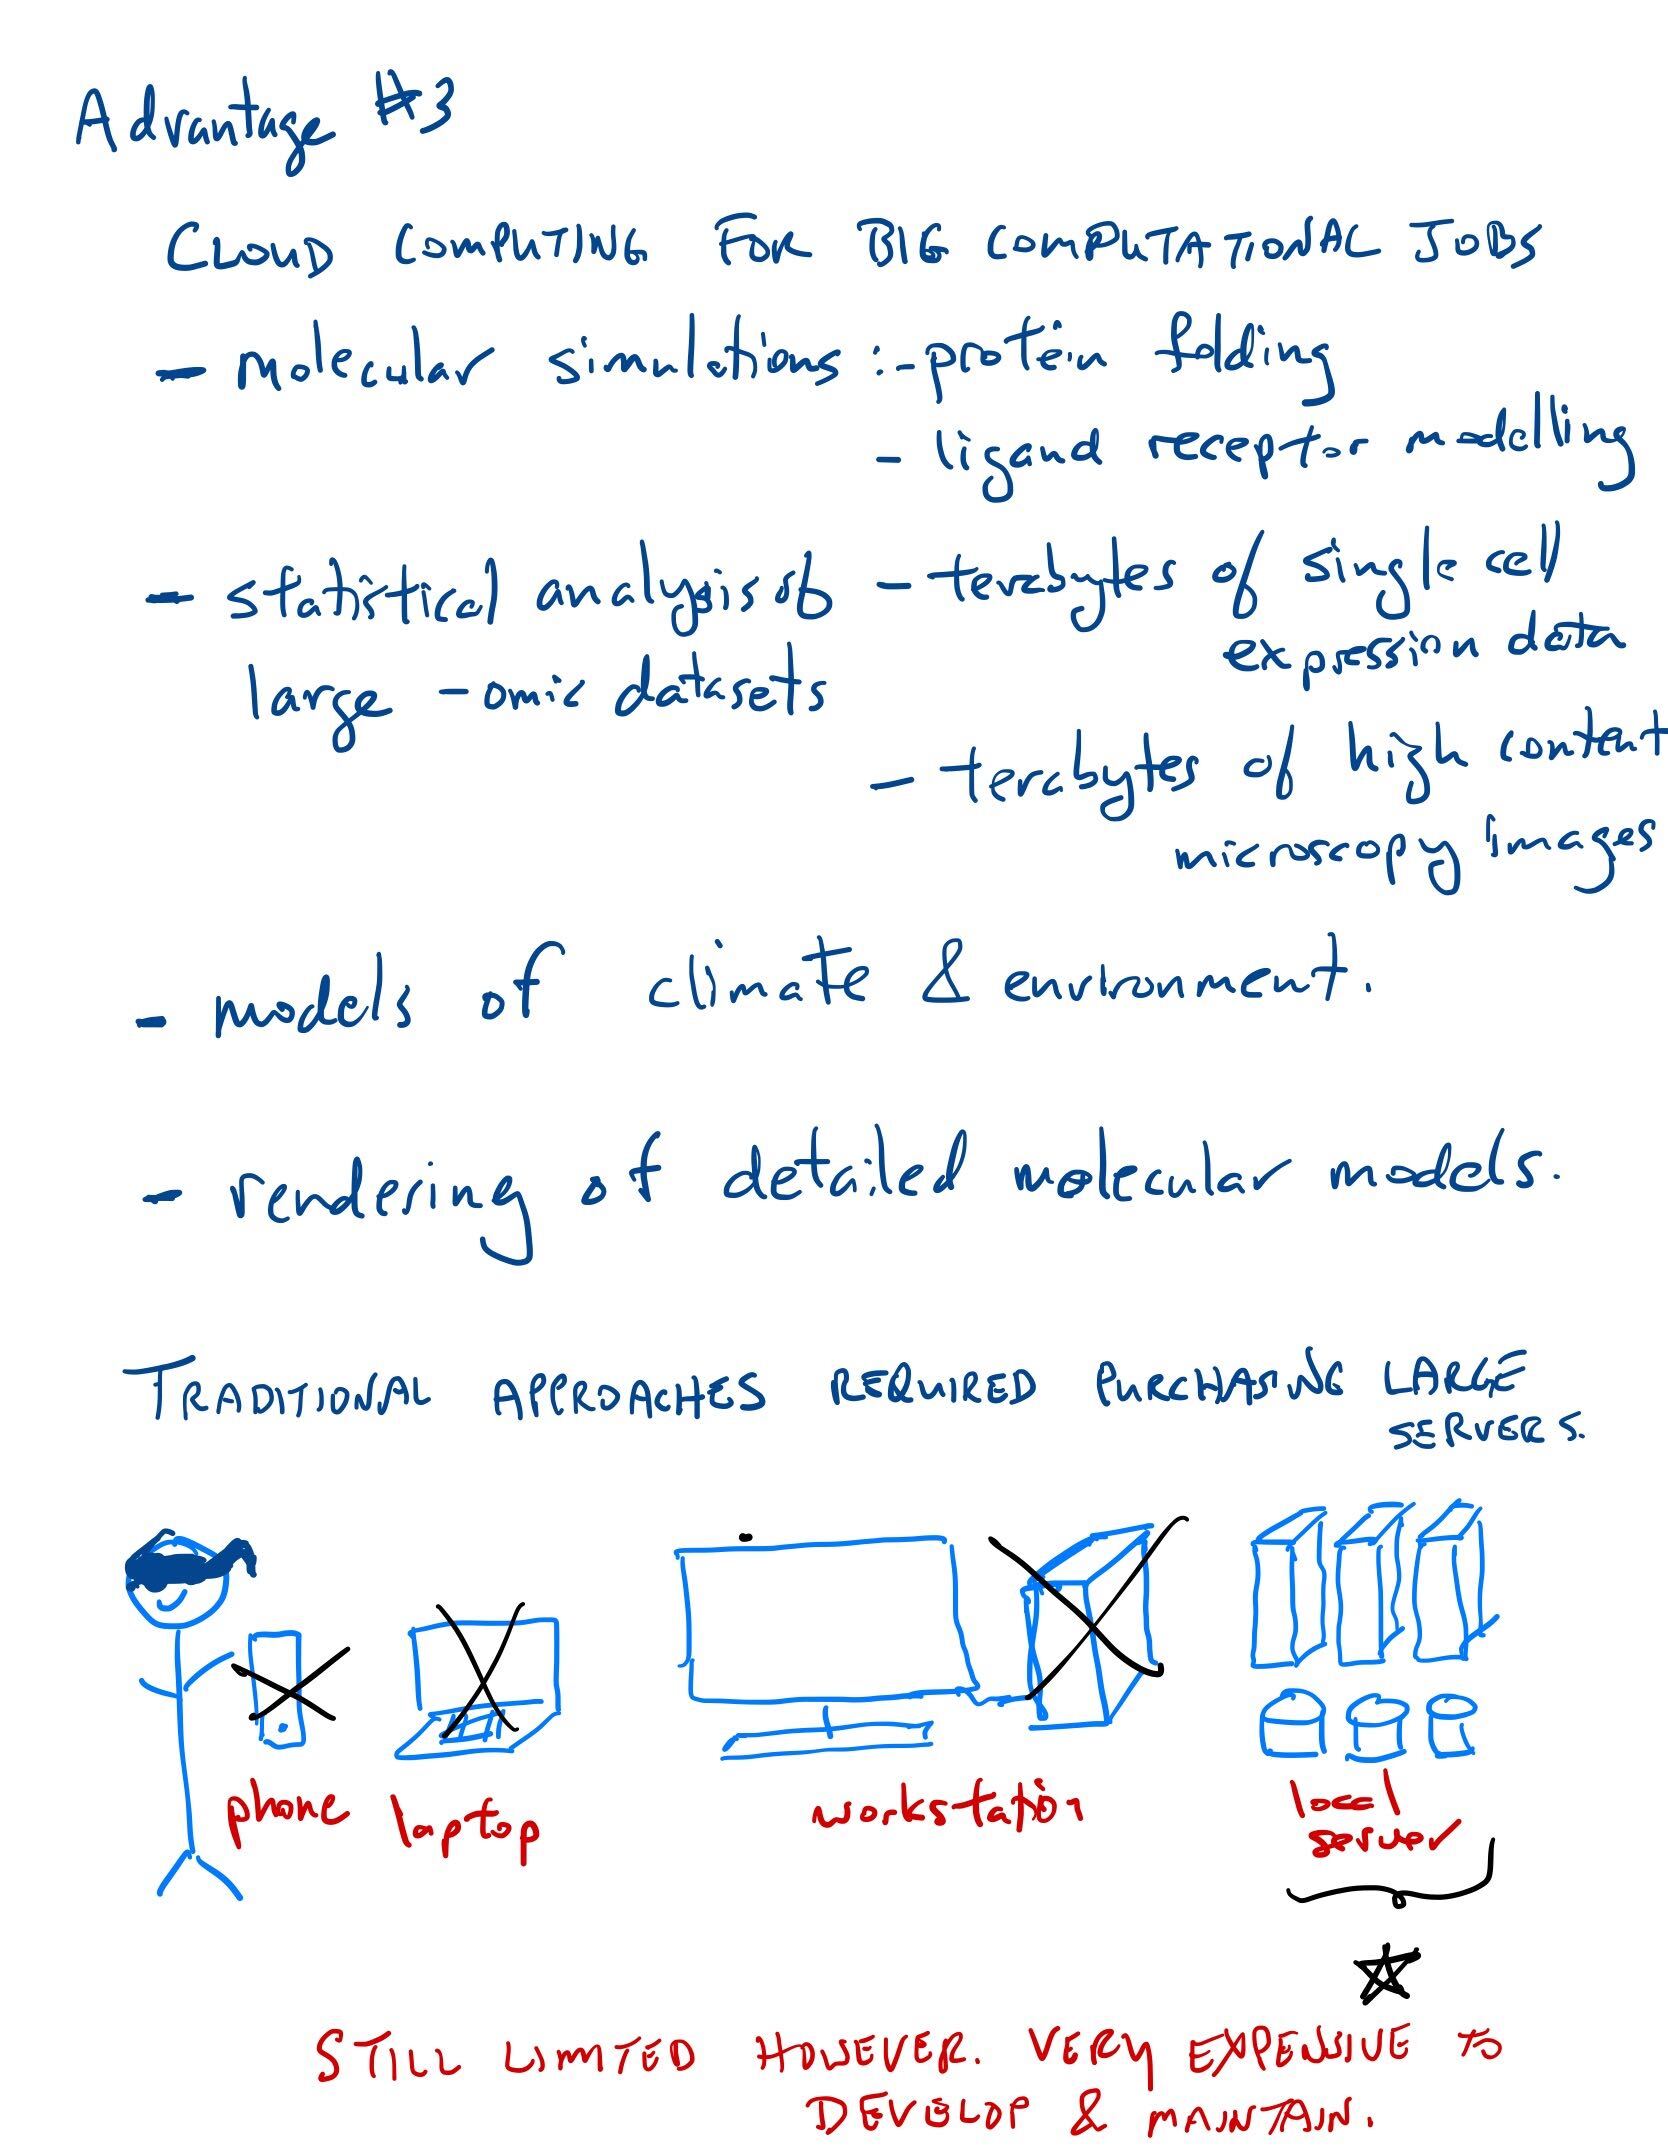 Advantage #3
CLOUD COMPUTING FOR BIG COMPUTATIONAL JOBS
- molecular simulations :- protein folding
- ligand receptor modelling
- statistical analysis of
large -omic datasets
- terabytes of single cell
expression data
- terabytes of high content
microscopy images
- models of climate & environment.
- rendering of detailed molecular models.
TRADITIONAL APPROACHES REQUIRED PURCHASING LARGE
SERVERS.
phone
laptop
workstation
local
server
STILL LIMITED HOWEVER. VERY EXPENSIVE TO
DEVELOP & MAINTAIN.